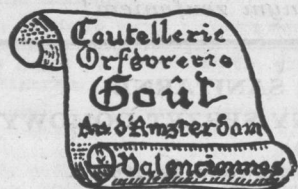 Coutellerie
Orfèvrerie
Goût
Au d'Amsterdam
Valenciennes